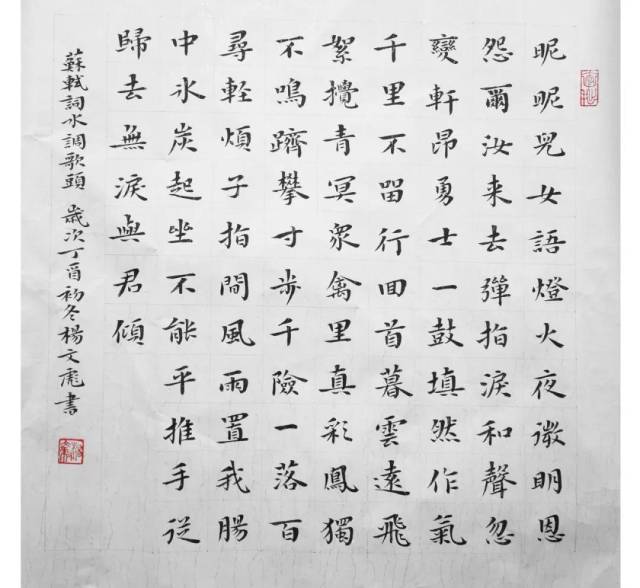 昵昵兒女語燈火夜微明恩
怨爾汝来去彈指淚和聲忽
變軒昂勇士一鼓填然作氣
千里不留行回首暮雲遠飛
絮攪青冥衆禽里真彩鳳獨
不鳴躋攀寸步千險一落百
尋軽煩子指間風雨置我腸
中氷炭起坐不能平推手從
歸去無淚與君傾
蘇軾詞水調歌頭 歲次丁酉初冬楊文虎書